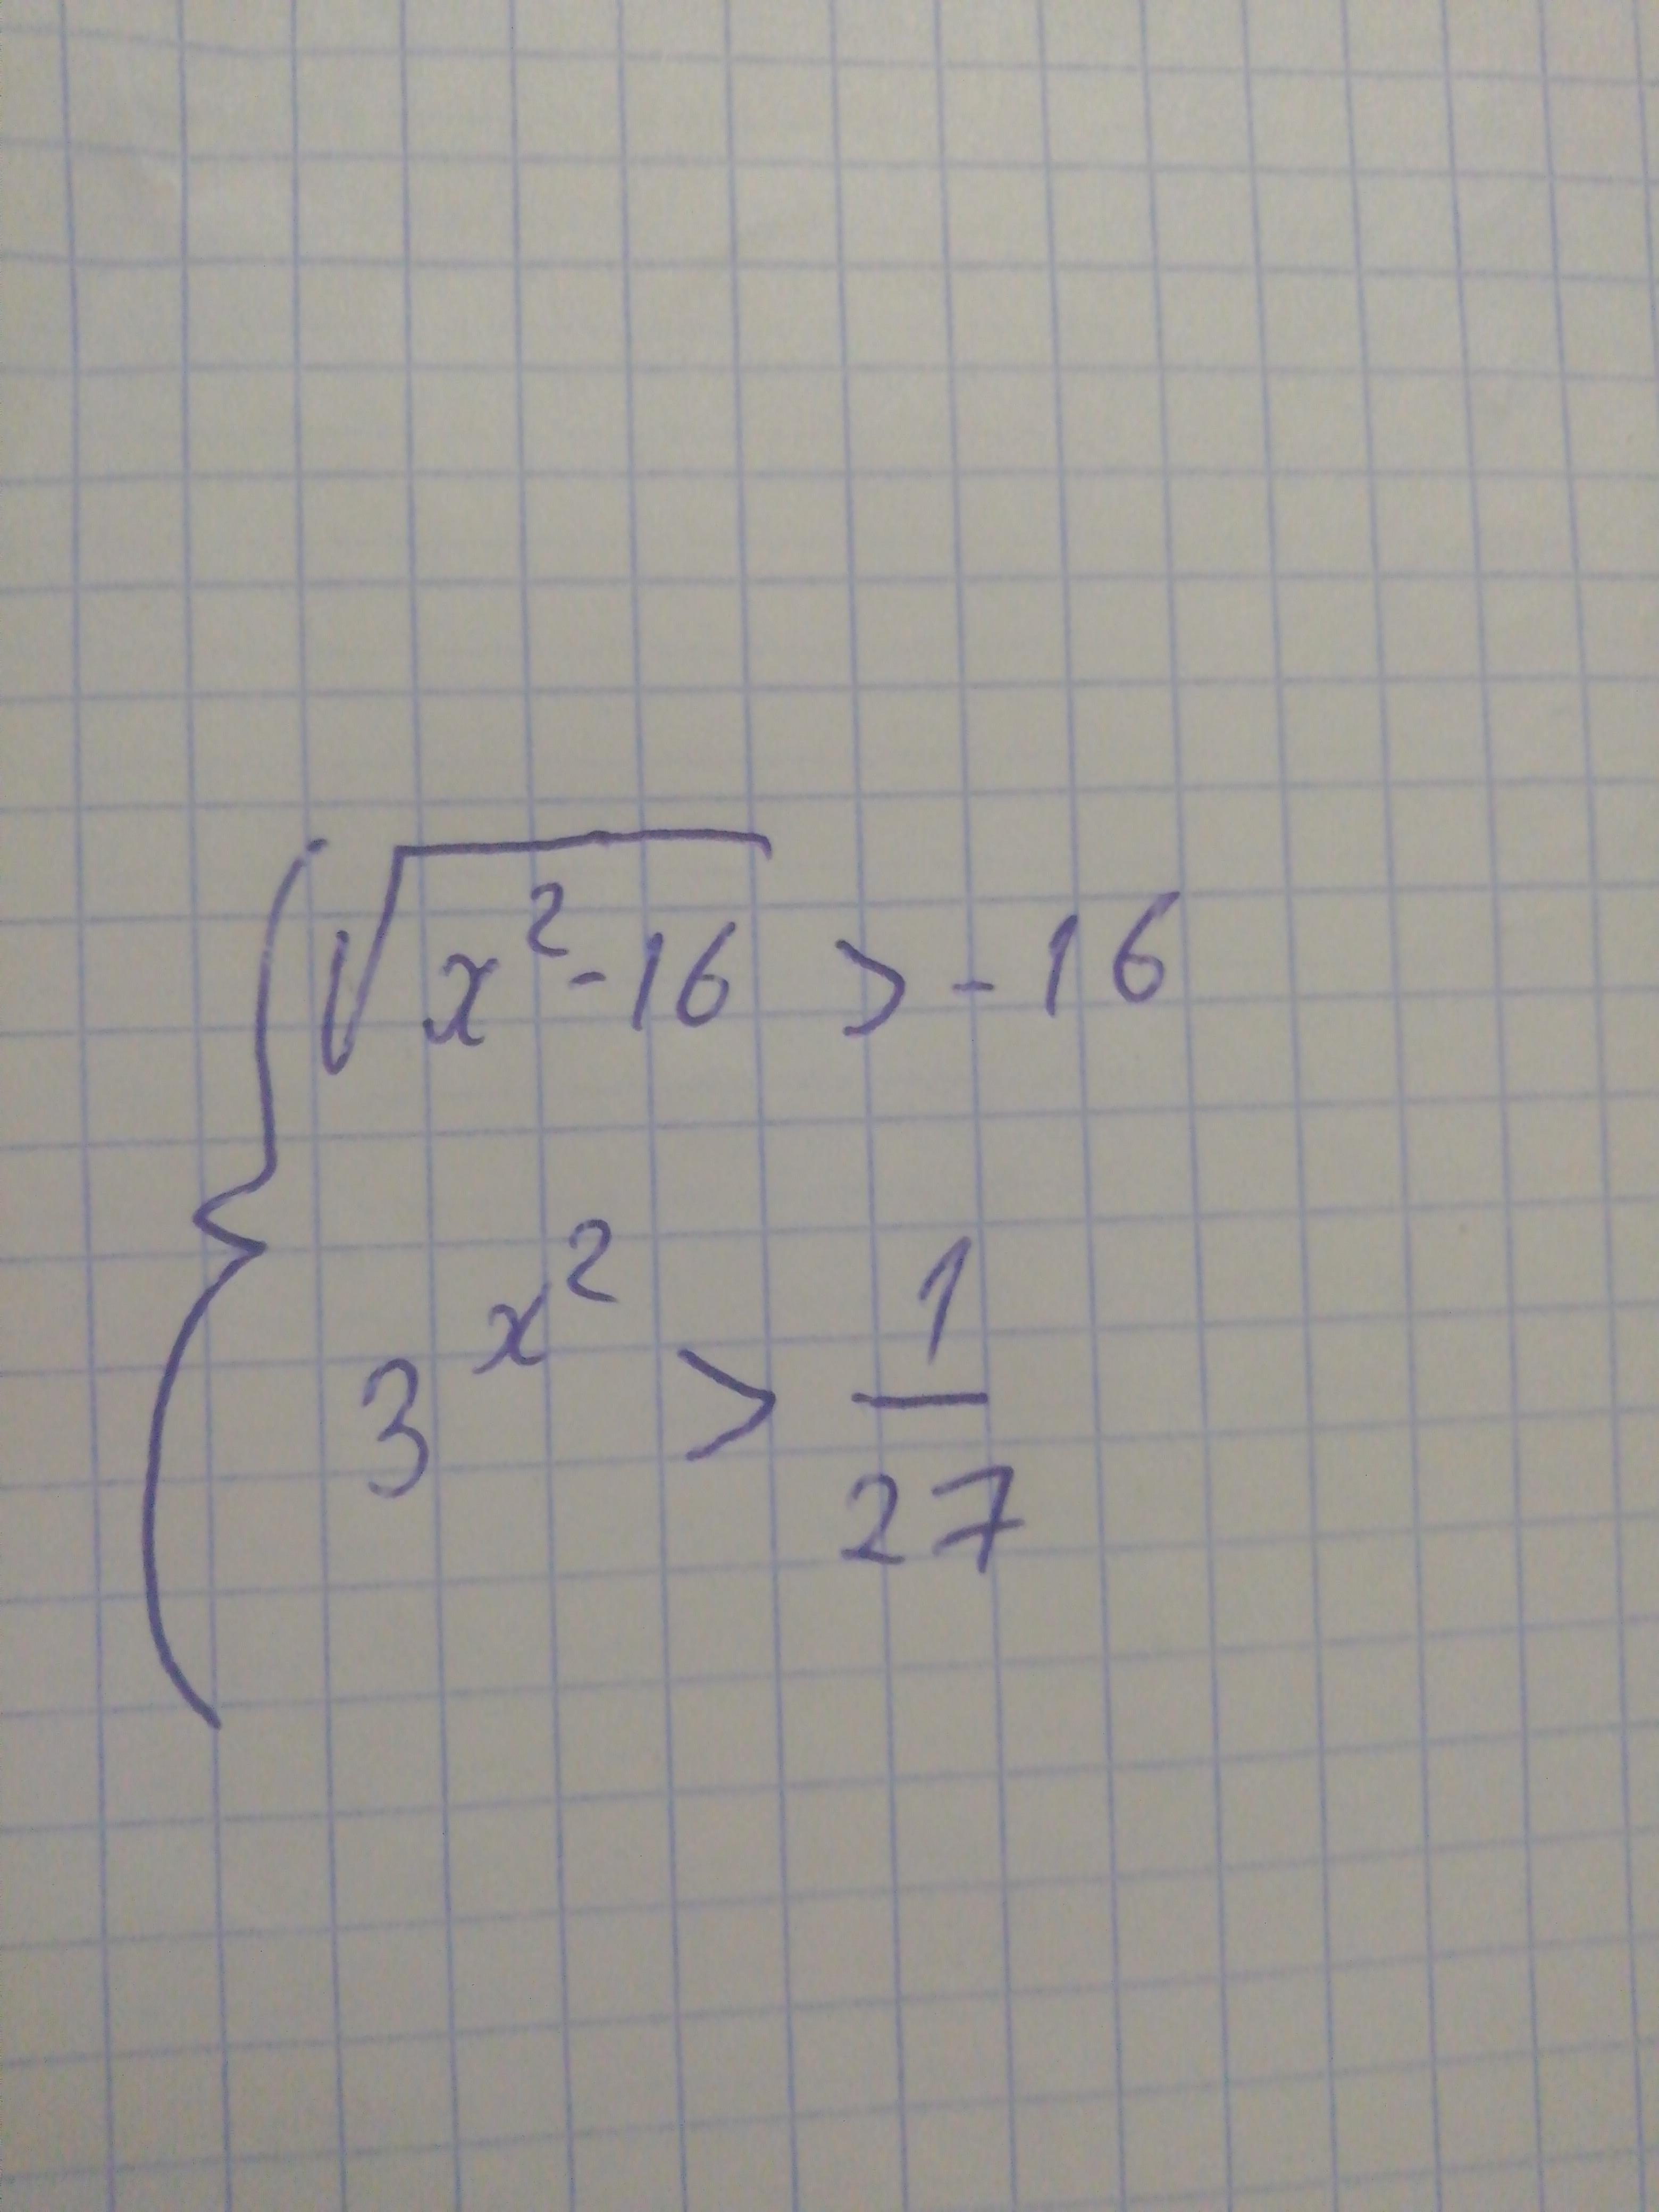 √(x²-16) > -16
3^(x²) > 1/27